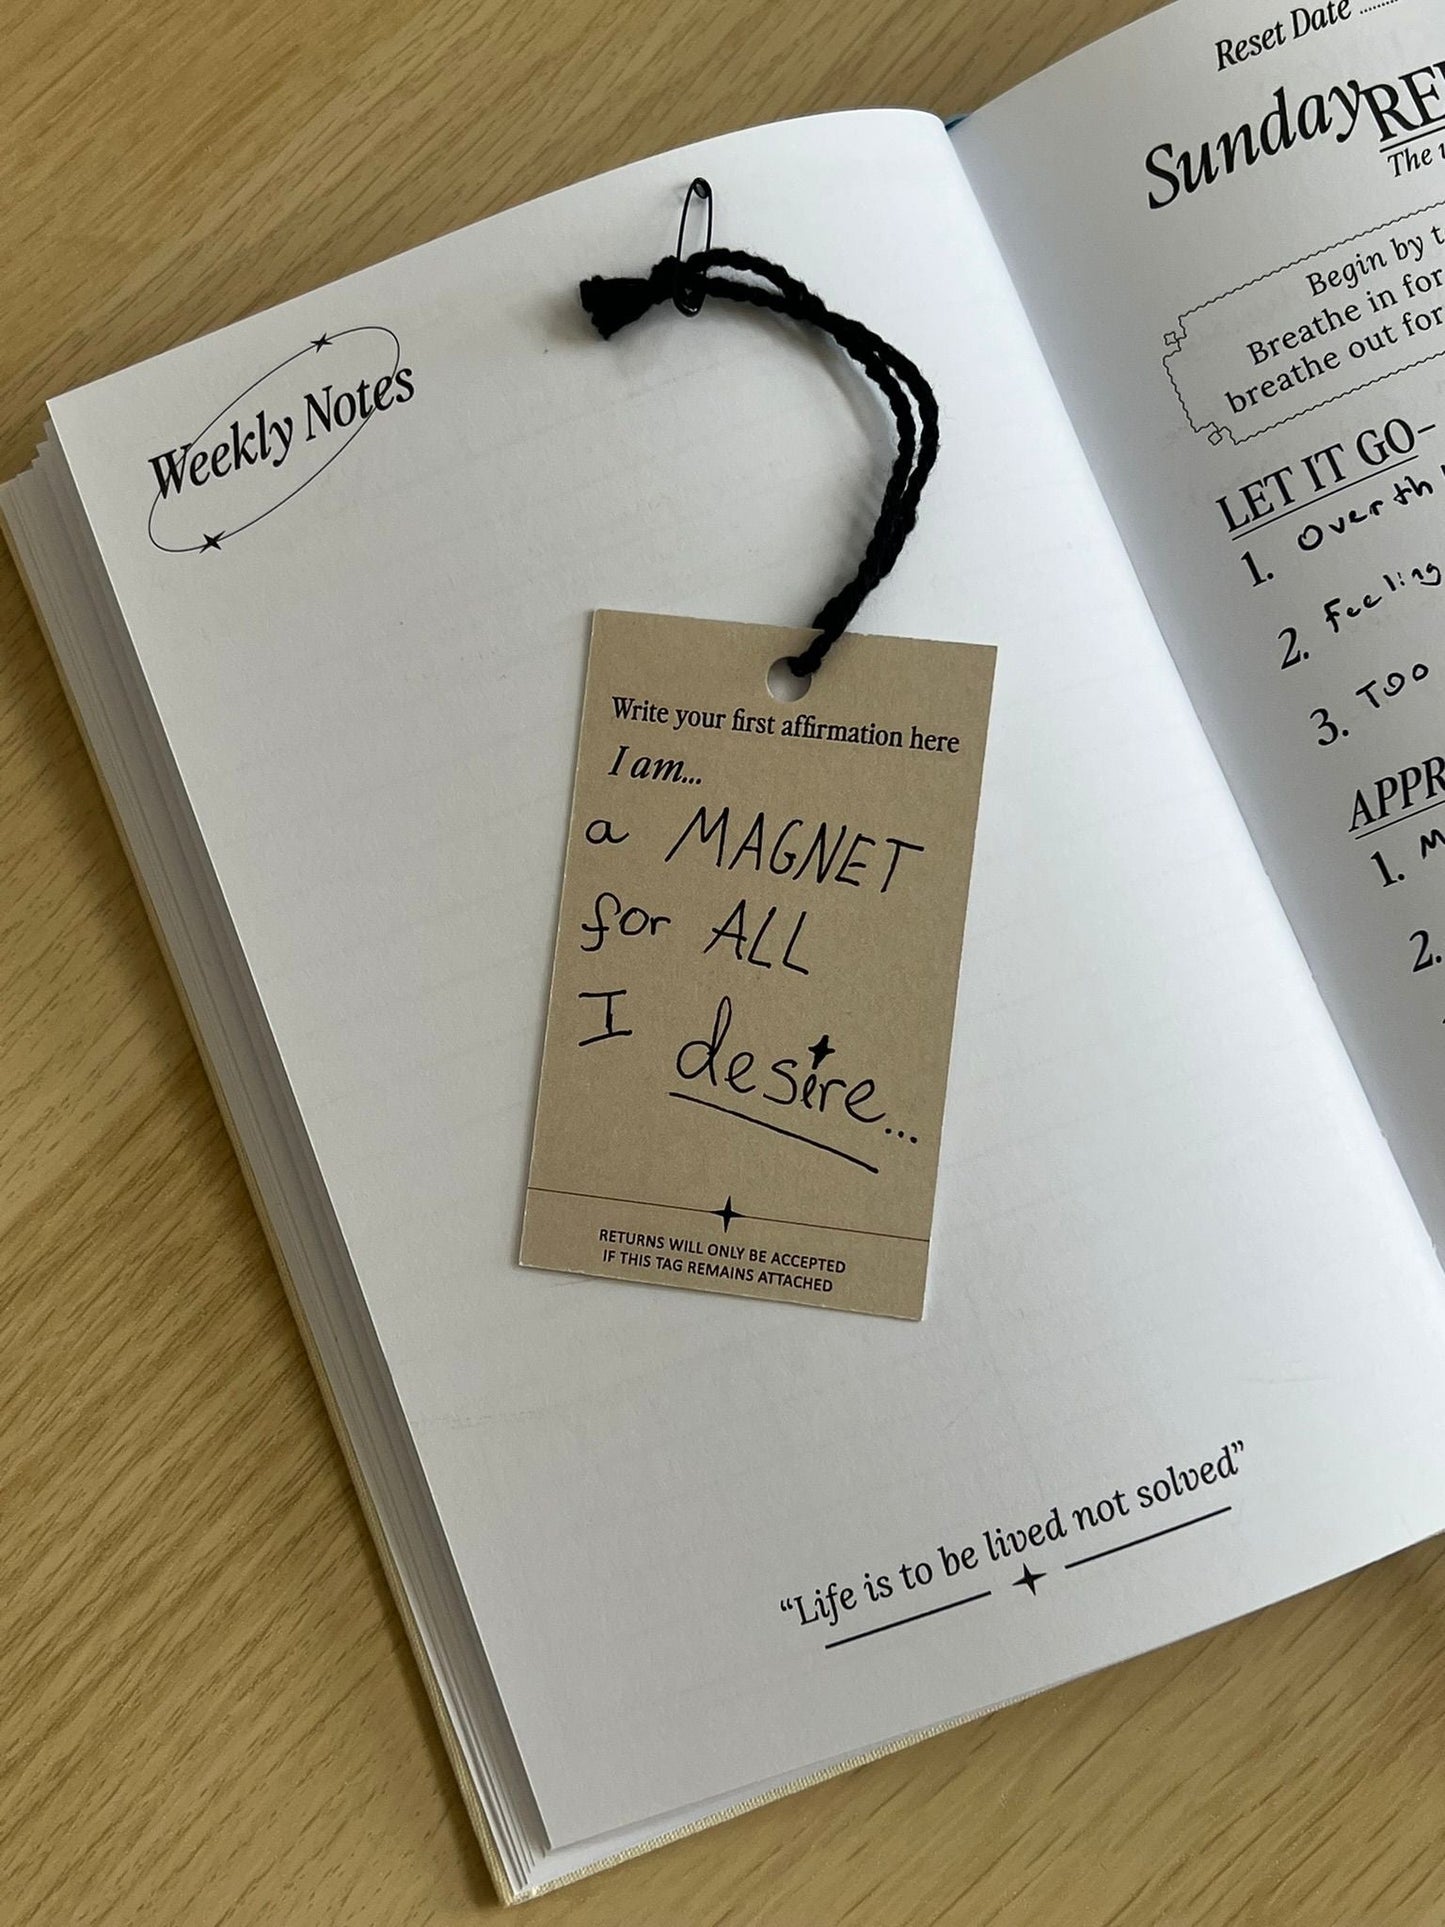 Weekly Notes
Write your first affirmation here
I am...
a MAGNET
for ALL
I desire...
RETURNS WILL ONLY BE ACCEPTED
IF THIS TAG REMAINS ATTACHED
"Life is to be lived not solved"
Reset Date
Sunday
The
Begin by
Breathe in for
breathe out for
LET IT GO-
1.
2. Feeling
3. Too
1.
2.